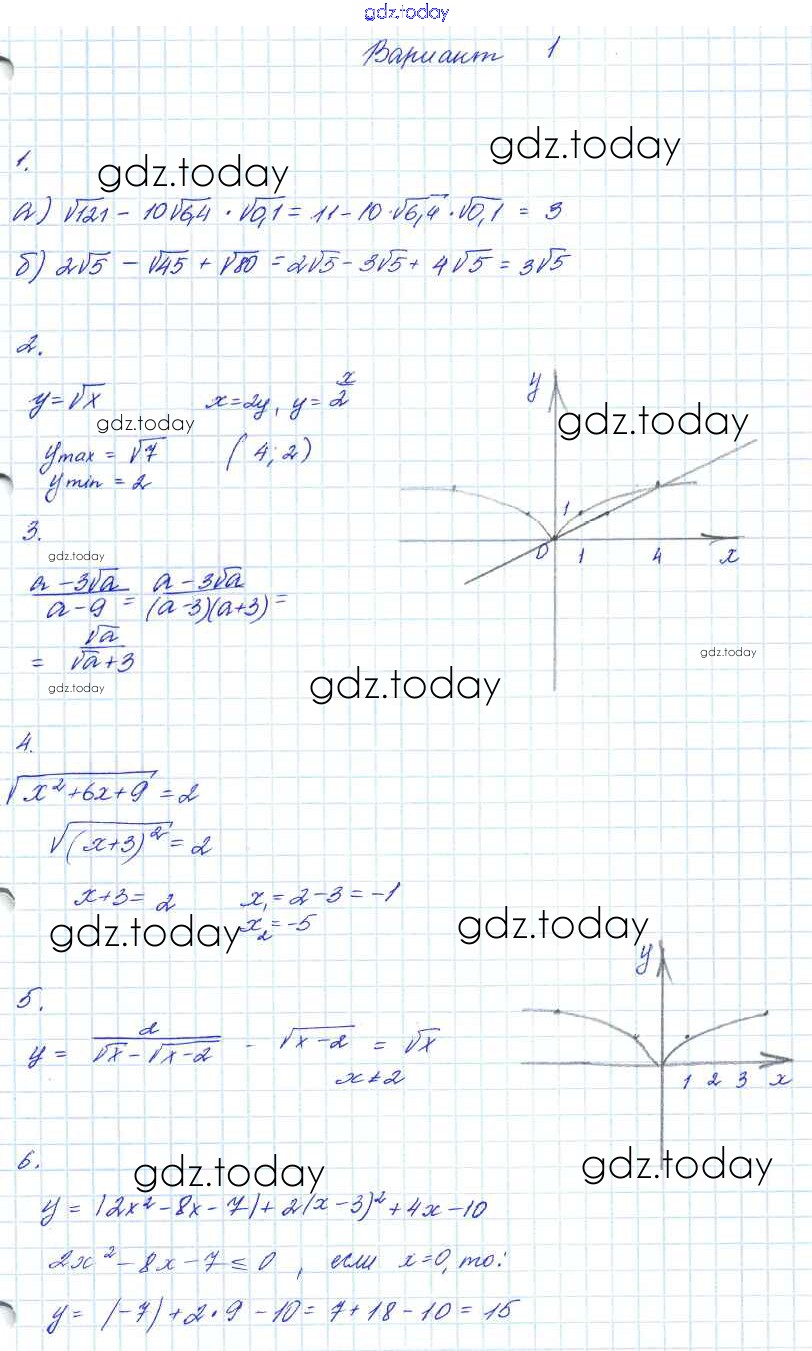 gdz.today
Вариант 1
gdz.today
1.
gdz.today
а) √121 - 10√6,4 · √0,1 = 11 - 10·√6,4 · √0,1 = 3
б) 2√5 - √45 + √80 = 2√5 - 3√5 + 4√5 = 3√5
2.
y = √x x = 2y, y = x/2
gdz.today
y max = √7 (4; 2)
y min = 2
y
gdz.today
1
0 1 4 x
3.
gdz.today
(a - 3√a)/(a - 9) = (a - 3√a)/((a - 3)(a + 3)) =
= √a/(√a + 3)
gdz.today
gdz.today
gdz.today
4.
√(x² + 6x + 9) = 2
√((x + 3)²) = 2
x + 3 = 2 x₁ = 2 - 3 = -1
x₂ = -5
gdz.today
gdz.today
5.
y = 2/(√x - √(x-2)) - √(x-2) = √x
x ≠ 2
y
1 2 3 x
6.
gdz.today
gdz.today
y = |2x² - 8x - 7| + 2(x - 3)² + 4x - 10
2x² - 8x - 7 ≤ 0, если x = 0, то:
y = |-7| + 2·9 - 10 = 7 + 18 - 10 = 15